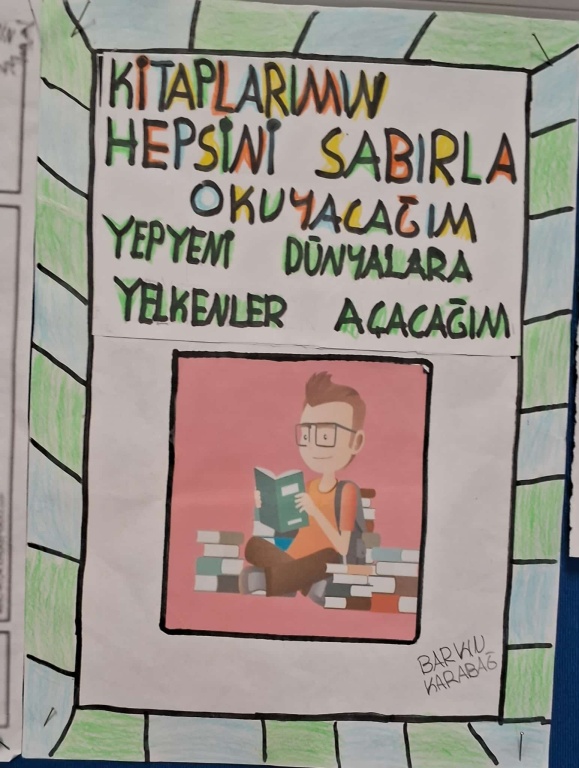 KİTAPLARIMIN
HEPSİNİ SABIRLA
OKUYACAĞIM
YEPYENİ DÜNYALARA
YELKENLER AÇACAĞIM
BARKIN
KARABAĞ